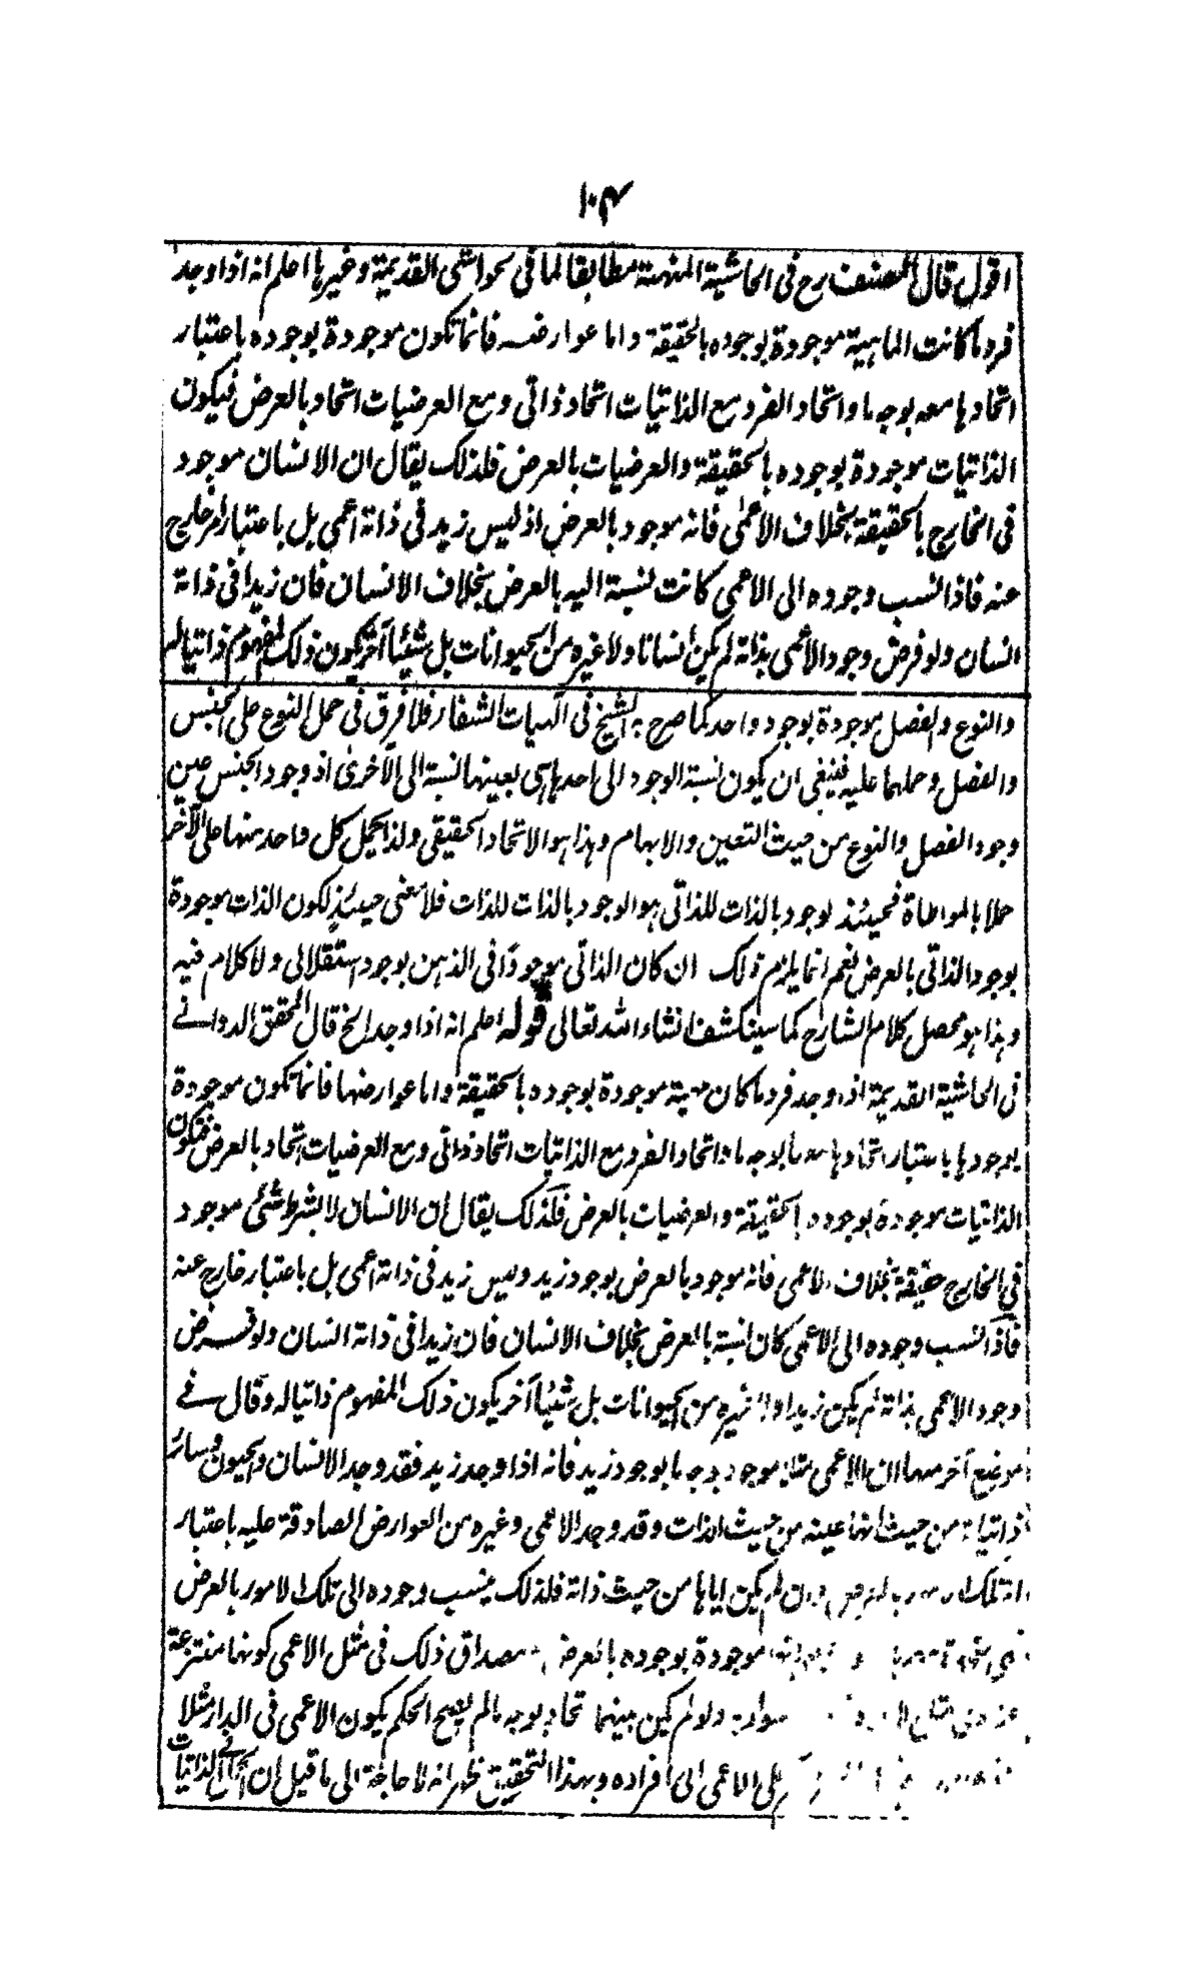 ١٠٤
اقول قال المصنف رح فى الحاشية المنهية مطابقا لما فى الحواشى القديمة وغيرها اعلم انه اذا وجد
فرد ما كانت الماهية موجودة بوجوده بالحقيقة واما عوارضه فانما تكون موجودة بوجوده باعتبار
اتحادها معه بوجه ما واتحاد الفرد مع الذاتيات اتحاد ذاتى ومع العرضيات اتحاد بالعرض فيكون
الذاتيات موجودة بوجوده بالحقيقة والعرضيات بالعرض فلذلك يقال ان الانسان موجود
فى الخارج بالحقيقة بخلاف الاعمى فانه موجود بالعرض اذ ليس زيد فى ذاته اعمى بل باعتبار امر خارج
عنه فاذا انسب وجوده الى الاعمى كانت لنسبة اليه بالعرض بخلاف الانسان فان زيدا فى ذاته
انسان ولو فرض وجود الاعمى بذاته لم يكن انسانا ولا غيره من الحيوانات بل شيئا آخر يكون ذلك المفهوم ذاتيا له
والنوع والفصل موجودة بوجود واحد كما صرح به الشيخ فى الهيات الشفار فلا فرق فى حمل النوع على الجنس
والفصل وحملهما عليه فينبغى ان يكون نسبة الوجود الى احدها هى بعينها النسبة الى الأخرى اذ وجود الجنس عين
وجود الفصل والنوع من حيث التعين والابهام وهذا هو الاتحاد الحقيقى ولذا يحمل كل واحد منها على الآخر
حملا بالمواطاة فحينئذ لوجود بالذات للذاتى هو الوجود بالذات للذات فلا معنى حينئذ لكون الذات موجودة
بوجود الذاتى بالعرض نعم انما يلزم ذلك ان كان الذاتى موجودا فى الذهن بوجود استقلالى ولا كلام فيه
وهذا هو محصل كلام الشارح كما سينكشف انشاء الله تعالى قوله اعلم انه اذا وجد الخ قال المحقق الدوانے
فى الحاشية القديمة اذا وجد فرد ما كان مهية موجودة بوجوده بالحقيقة واما عوارضها فانما تكون موجودة
بوجودها باعتبار اتحادها معها بوجه ما واتحاد الفرد مع الذاتيات اتحاد ذاتى ومع العرضيات اتحاد بالعرض فتكون
الذاتيات موجودة بوجوده بالحقيقة والعرضيات بالعرض فلذلك يقال ان الانسان لا بشرط شئى موجود
فى الخارج حقيقة بخلاف الاعمى فانه موجود بالعرض بوجود زيد وليس زيد فى ذاته اعمى بل باعتبار خارج عنه
فاذا انسب وجوده الى الاعمى كان نسبة بالعرض بخلاف الانسان فان زيدا فى ذاته انسان ولو فرض
وجود الاعمى بذاته لم يكن زيدا ولا غيره من الحيوانات بل شيئا آخر يكون ذلك المفهوم ذاتيا له وقال فے
موضع آخر منها ان الاعمى مثلا موجود بوجه ما بوجود زيد فانه اذا وجد زيد فقد وجد الانسان والحيوان وسائر
ذاتياته من حيث انها عينه من حيث الذات وقد وجد الاعمى وغيره من العوارض الصادقة عليه باعتبار
انه تلك الامور بالعرض وان لم يكن اياها من حيث ذاته فلذلك ينسب وجوده الى تلك الامور بالعرض
موجودة بوجوده بالعرض مصداق ذلك فى مثل الاعمى كونها منتزعة
ولو لم يكن بينهما اتحاد بوجه ما لم يصح الحكم بكون الاعمى فى الدار مثلا
على الاعمى الى افراده وبهذا التحقيق ظهر انه لا حاجة الى ما قيل ان الذاتيات